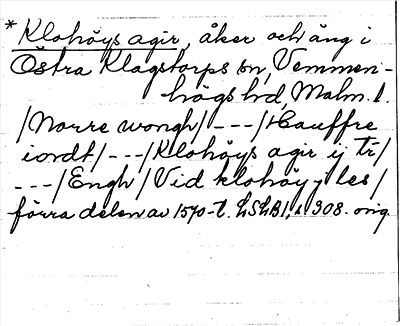 * Klohöys agir, åker och äng i
Östra Klagstorps sn, Vemmen-
högs hd, Malm. l.
/Norre wongh/ - - - /Hauffre
iordt/ - - - /Klohöys agir ij tr/
- - - /Engh/Vid klohöy j les/
förra delen av 1570-t. LSLB 1, s 308. orig.